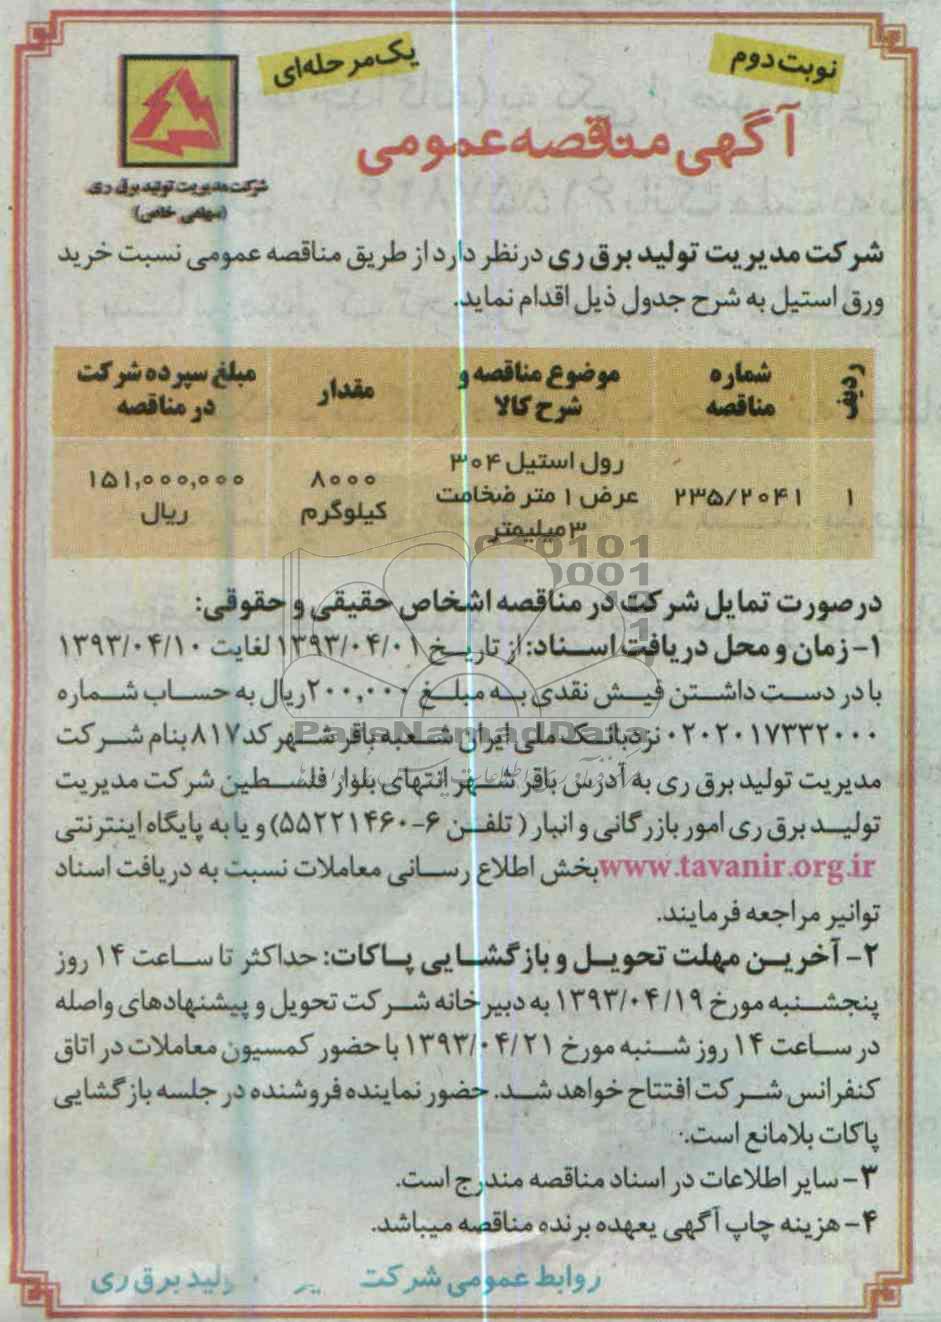 نوبت دوم
یک مرحله‌ای
آگهی مناقصه عمومی
شرکت مدیریت تولید برق ری
(سهامی خاص)
شرکت مدیریت تولید برق ری درنظر دارد از طریق مناقصه عمومی نسبت خرید
ورق استیل به شرح جدول ذیل اقدام نماید.
ردیف
شماره مناقصه
موضوع مناقصه و شرح کالا
مقدار
مبلغ سپرده شرکت در مناقصه
۱
۲۳۵/۲۰۴۱
رول استیل ۳۰۴
عرض ۱ متر ضخامت
۳ میلیمتر
۸۰۰۰
کیلوگرم
۱۵۱,۰۰۰,۰۰۰
ریال
درصورت تمایل شرکت در مناقصه اشخاص حقیقی و حقوقی:
۱- زمان و محل دریافت اسناد: از تاریخ ۱۳۹۳/۰۴/۰۱ لغایت ۱۳۹۳/۰۴/۱۰
با در دست داشتن فیش نقدی به مبلغ ۲۰۰,۰۰۰ ریال به حساب شماره
۰۲۰۲۰۱۷۳۳۲۰۰۰ نزد بانک ملی ایران شعبه باقر شهر کد ۸۱۷ بنام شرکت
مدیریت تولید برق ری به آدرس باقر شهر انتهای بلوار فلسطین شرکت مدیریت
تولید برق ری امور بازرگانی و انبار ( تلفن ۶-۵۵۲۲۱۴۶۰) و یا به پایگاه اینترنتی
www.tavanir.org.ir بخش اطلاع رسانی معاملات نسبت به دریافت اسناد
توانیر مراجعه فرمایند.
۲- آخرین مهلت تحویل و بازگشایی پاکات: حداکثر تا ساعت ۱۴ روز
پنجشنبه مورخ ۱۳۹۳/۰۴/۱۹ به دبیرخانه شرکت تحویل و پیشنهادهای واصله
در ساعت ۱۴ روز شنبه مورخ ۱۳۹۳/۰۴/۲۱ با حضور کمسیون معاملات در اتاق
کنفرانس شرکت افتتاح خواهد شد. حضور نماینده فروشنده در جلسه بازگشایی
پاکات بلامانع است.
۳- سایر اطلاعات در اسناد مناقصه مندرج است.
۴- هزینه چاپ آگهی یعهده برنده مناقصه میباشد.
روابط عمومی شرکت تولید برق ری
ParsNamadData